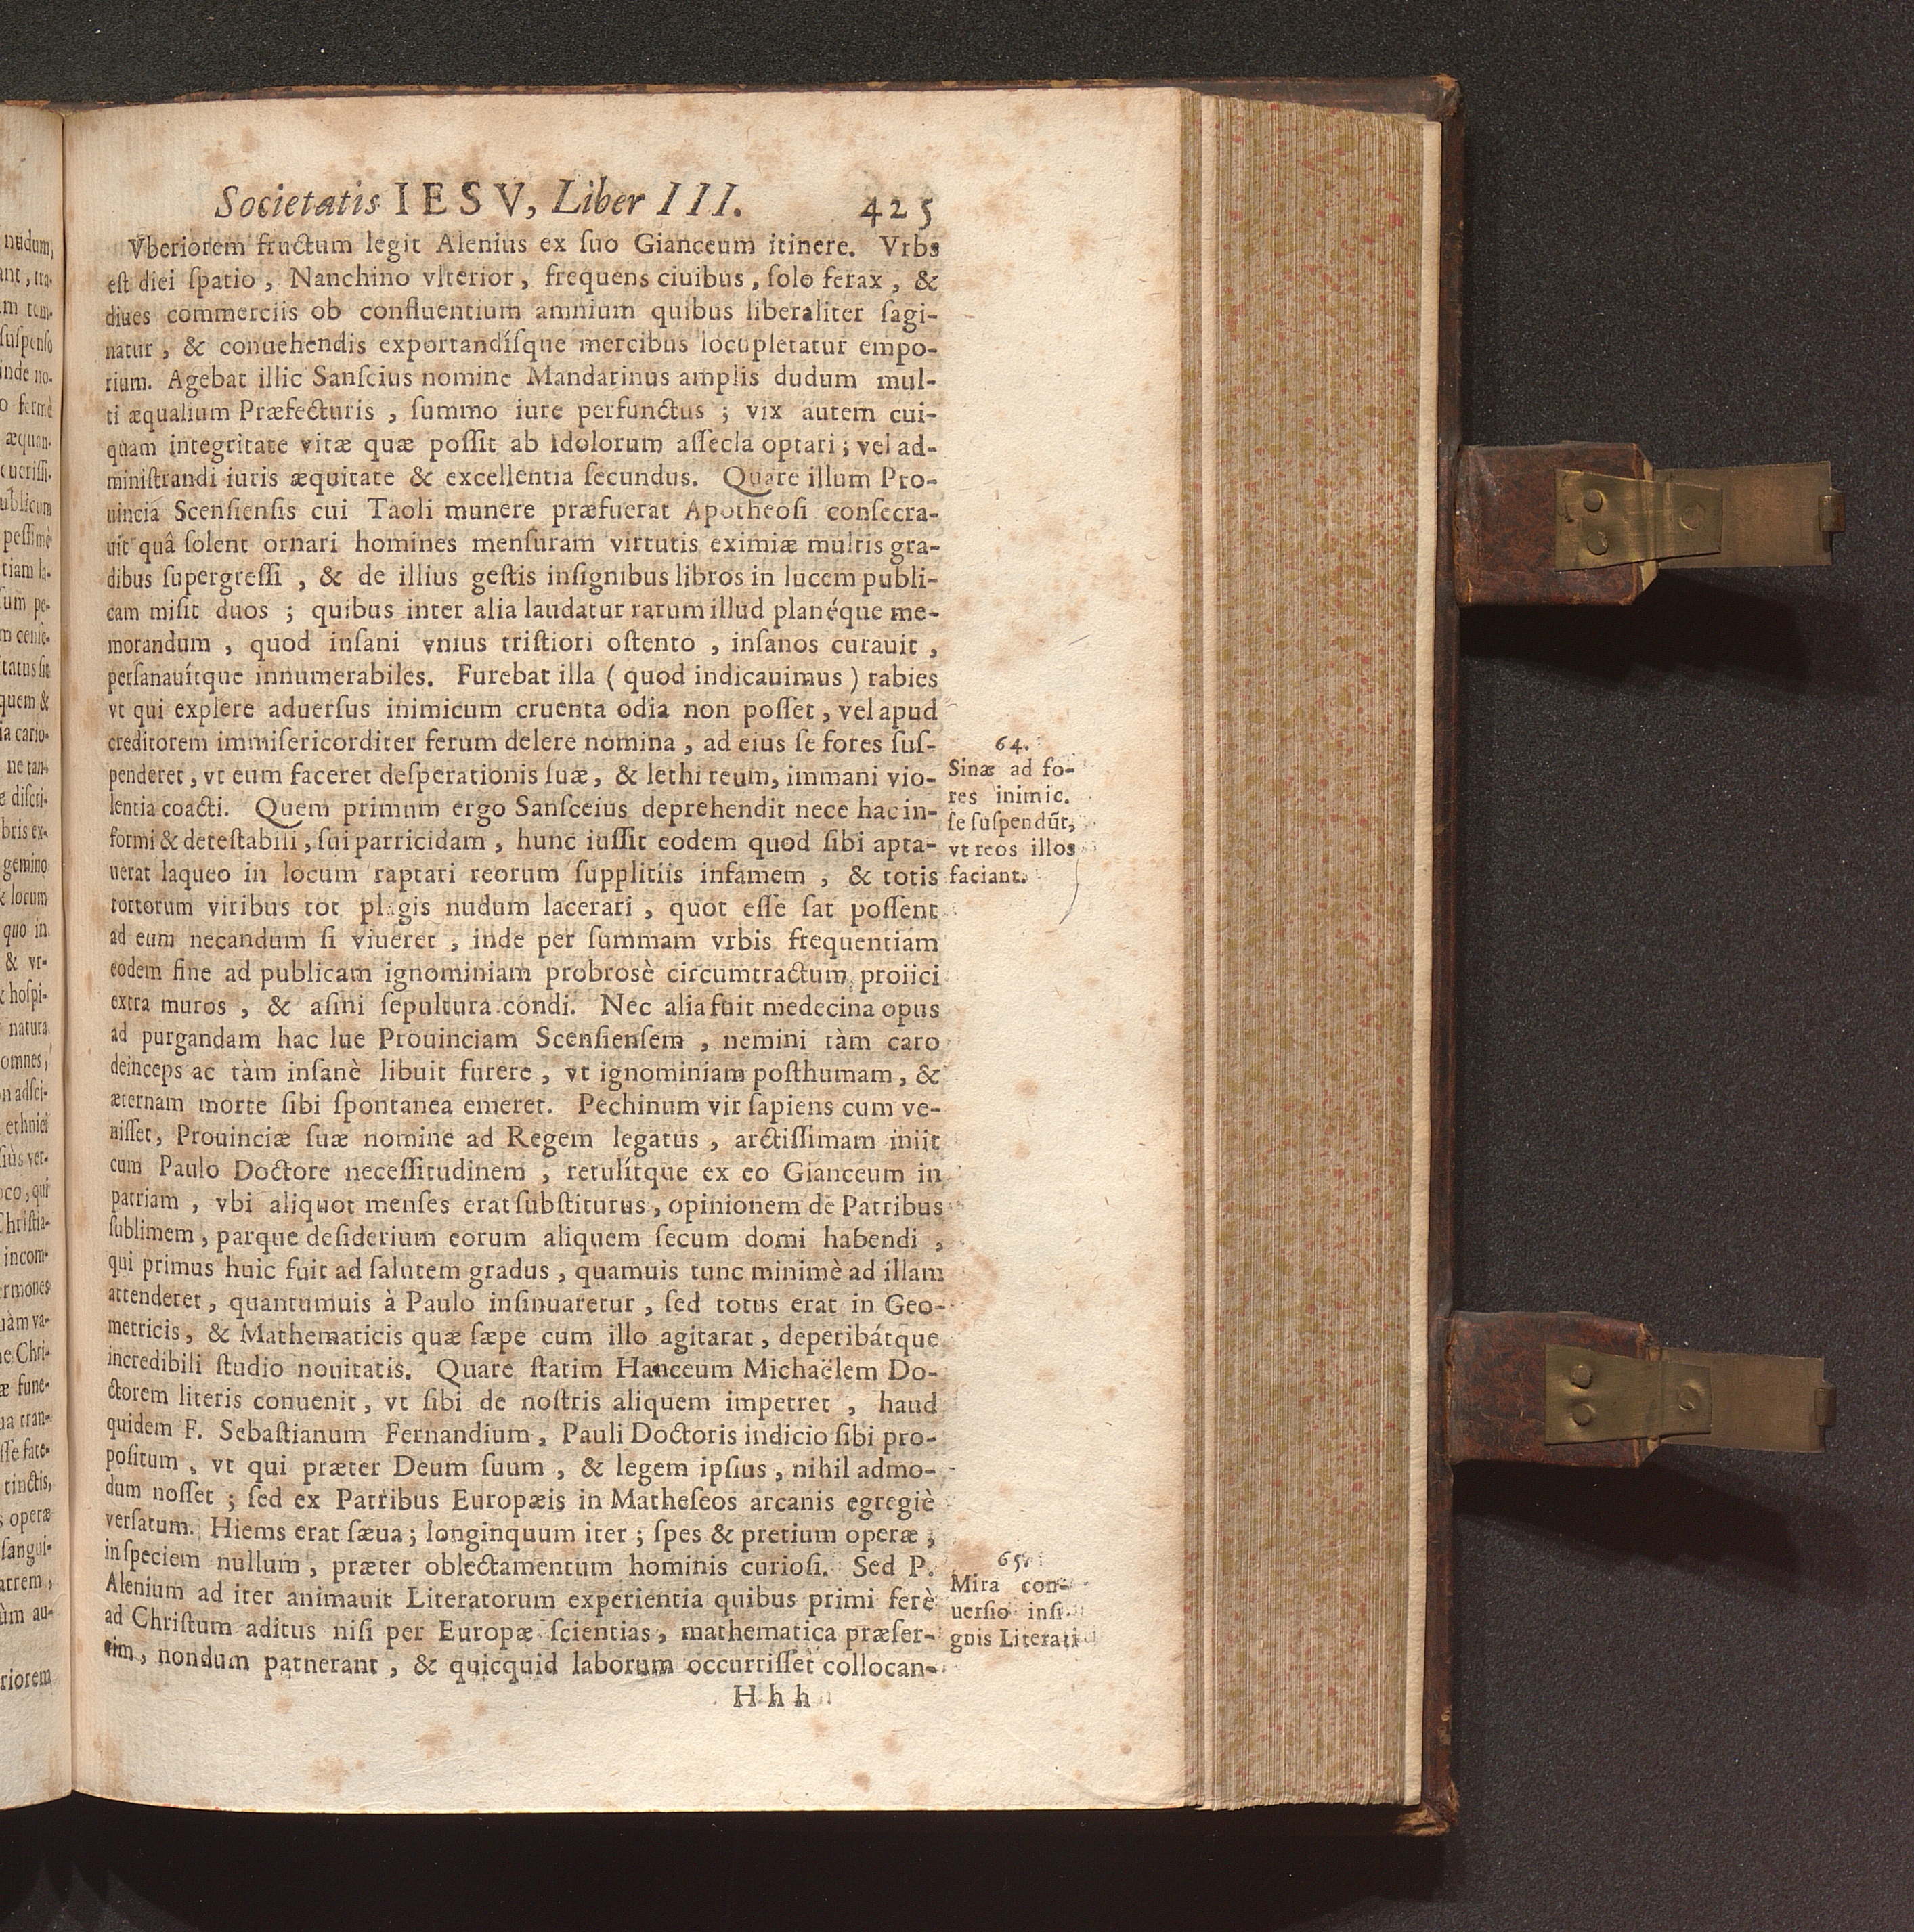 Societatis IESV, Liber III. 425
Vberiorem fructum legit Alenius ex suo Gianceum itinere. Vrbs
est diei spatio, Nanchino vlterior, frequens ciuibus, solo ferax, &
diues commerciis ob confluentium amnium quibus liberaliter sagi-
natur, & conuehendis exportandísque mercibus locupletatur empo-
rium. Agebat illic Sanscius nomine Mandarinus amplis dudum mul-
ti æqualium Præfecturis, summo iure perfunctus; vix autem cui-
quam integritate vitæ quæ possit ab idolorum assecla optari; vel ad-
ministrandi iuris æquitate & excellentia secundus. Quare illum Pro-
uincia Scensiensis cui Taoli munere præfuerat Apotheosi consecra-
uit quâ solent ornari homines mensuram virtutis eximiæ multis gra-
dibus supergressi, & de illius gestis insignibus libros in lucem publi-
cam misit duos; quibus inter alia laudatur rarum illud planéque me-
morandum, quod insani vnius tristiori ostento, insanos curauit,
persanauítque innumerabiles. Furebat illa (quod indicauimus) rabies
vt qui explere aduersus inimicum cruenta odia non posset, vel apud
creditorem immisericorditer ferum delere nomina, ad eius se fores sus-
penderet, vt eum faceret desperationis suæ, & lethi reum, immani vio-
lentia coacti. Quem primum ergo Sansceius deprehendit nece hac in-
formi & detestabili, sui parricidam, hunc iussit eodem quod sibi apta-
uerat laqueo in locum raptari reorum supplitiis infamem, & totis
tortorum viribus tot plagis nudum lacerari, quot esse sat possent
ad eum necandum si viueret, inde per summam vrbis frequentiam
eodem fine ad publicam ignominiam probrosè circumtractum, proiici
extra muros, & asini sepultura condi. Nec alia fuit medecina opus
ad purgandam hac lue Prouinciam Scensiensem, nemini tàm caro
deinceps ac tàm insanè libuit furere, vt ignominiam posthumam, &
æternam morte sibi spontanea emeret. Pechinum vir sapiens cum ve-
nisset, Prouinciæ suæ nomine ad Regem legatus, arctissimam iniit
cum Paulo Doctore necessitudinem, retulítque ex eo Gianceum in
patriam, vbi aliquot menses erat substiturus, opinionem de Patribus
sublimem, parque desiderium eorum aliquem secum domi habendi,
qui primus huic fuit ad salutem gradus, quamuis tunc minimè ad illam
attenderet, quantumuis à Paulo insinuaretur, sed totus erat in Geo-
metricis, & Mathematicis quæ sæpe cum illo agitarat, deperibátque
incredibili studio nouitatis. Quare statim Hanceum Michaëlem Do-
ctorem literis conuenit, vt sibi de nostris aliquem impetret, haud
quidem F. Sebastianum Fernandium, Pauli Doctoris indicio sibi pro-
positum, vt qui præter Deum suum, & legem ipsius, nihil admo-
dum nosset; sed ex Patribus Europæis in Matheseos arcanis egregiè
versatum. Hiems erat sæua; longinquum iter; spes & pretium operæ;
in speciem nullum, præter oblectamentum hominis curiosi. Sed P.
Alenium ad iter animauit Literatorum experientia quibus primi ferè
ad Christum aditus nisi per Europæ scientias, mathematica præser-
tim, nondum patnerant, & quicquid laborum occurrisset collocan-
Hhh
64.
Sinæ ad fo-
res inimic.
se suspendūt,
vt reos illos
faciant.
65.
Mira con-
uersio insi-
gnis Literati